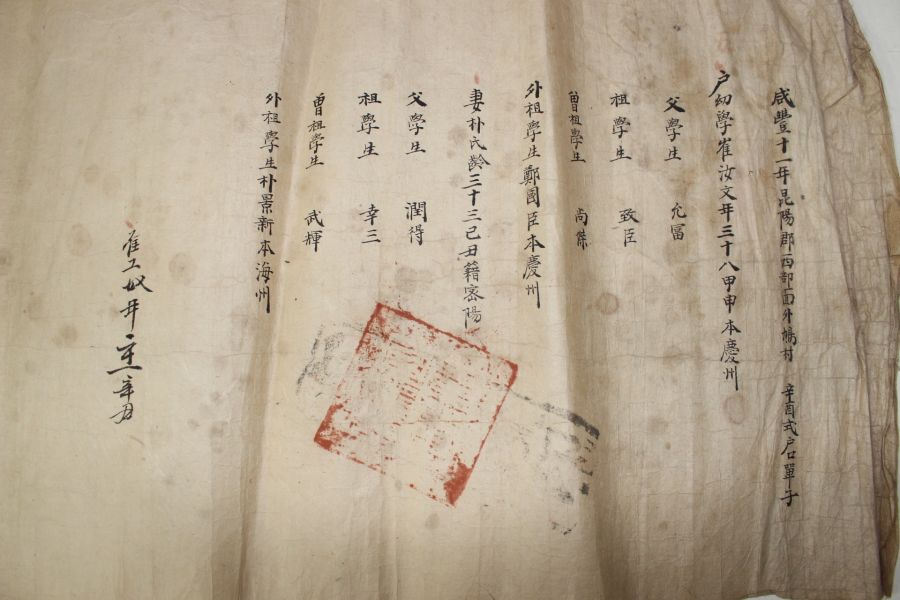 咸豐十一年昆陽郡西部面外鳩村 辛酉式戶口單子
戶幼學崔汝文年三十八甲申本慶州
父學生 允富
祖學生 致臣
曾祖學生 尚傑
外祖學生鄭國臣本慶州
妻朴氏齡三十三己丑籍密陽
父學生 潤得
祖學生 幸三
曾祖學生 武輝
外祖學生朴景新本海州